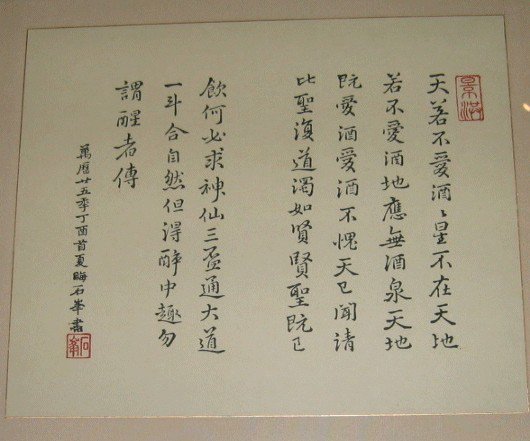 天若不愛酒〻星不在天地
若不愛酒地應無酒泉天地
既愛酒愛酒不愧天已聞請
比聖復道濁如賢賢聖既已
飲何必求神仙三盃通大道
一斗合自然但得醉中趣勿
謂醒者傳
萬曆廿五秊丁酉首夏晦石峯書
石峯